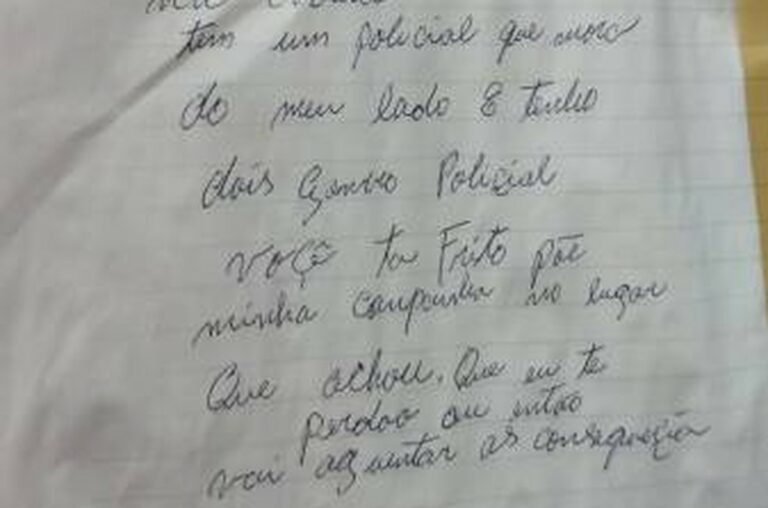 tem um policial que mora
do meu lado E tenho
dois Genro Policial
voçê ta Frito põe
minha campanha no lugar
Que achou. Que eu te
perdoo ou então
vai aguentar as